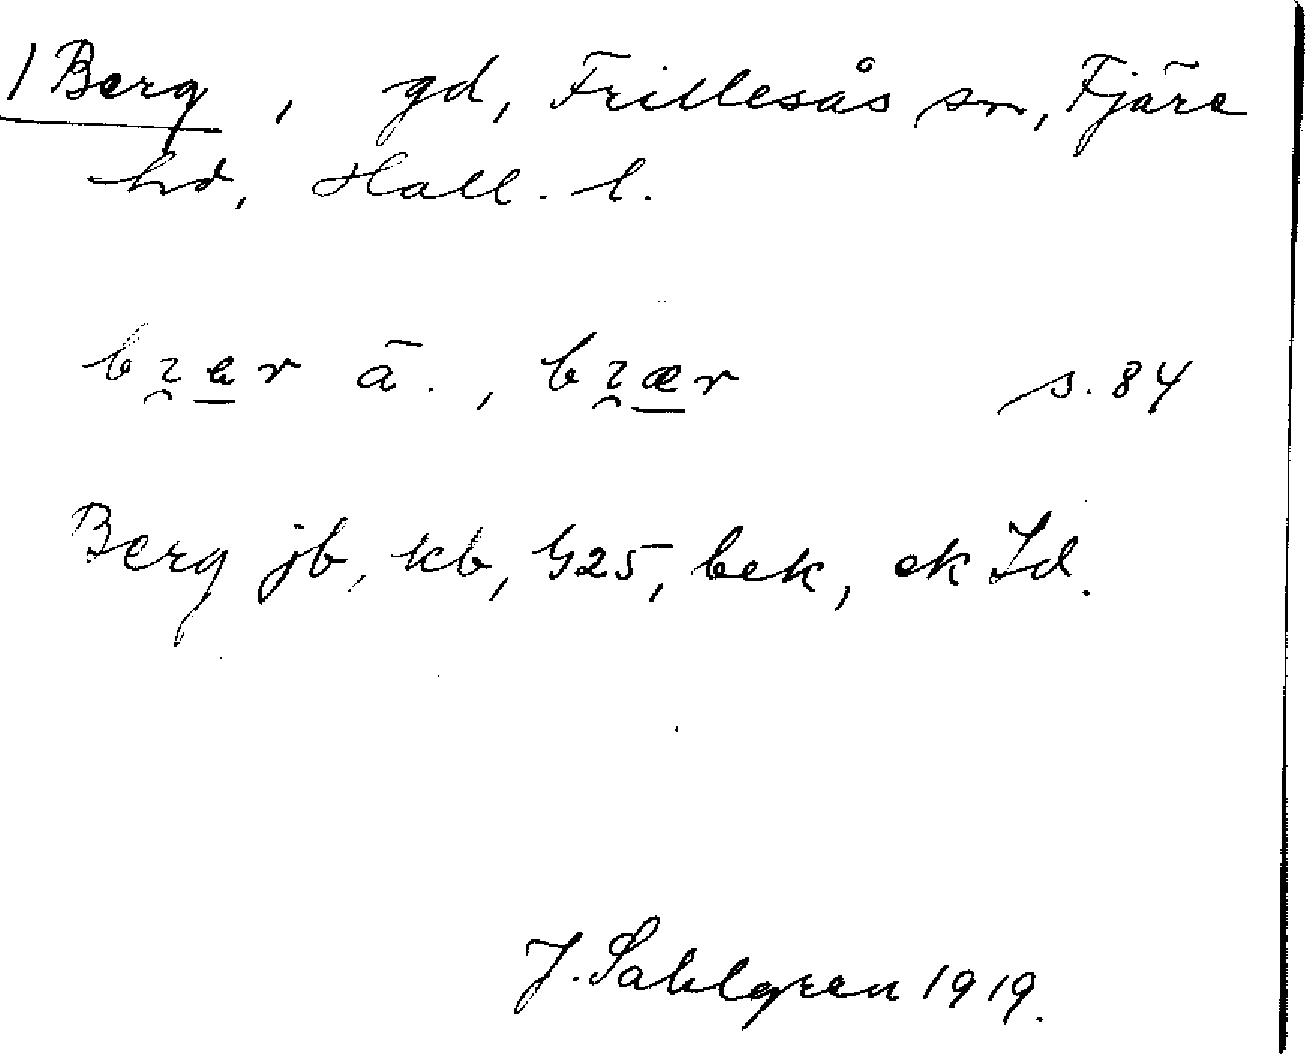 1 Berg, gd, Frillesås sn, Fjäre
hd, Hall. l.
bɿær ä., bɿær s. 84
Berg jb, kb, G25, bek, ek Jd.
J. Sahlgren 1919.